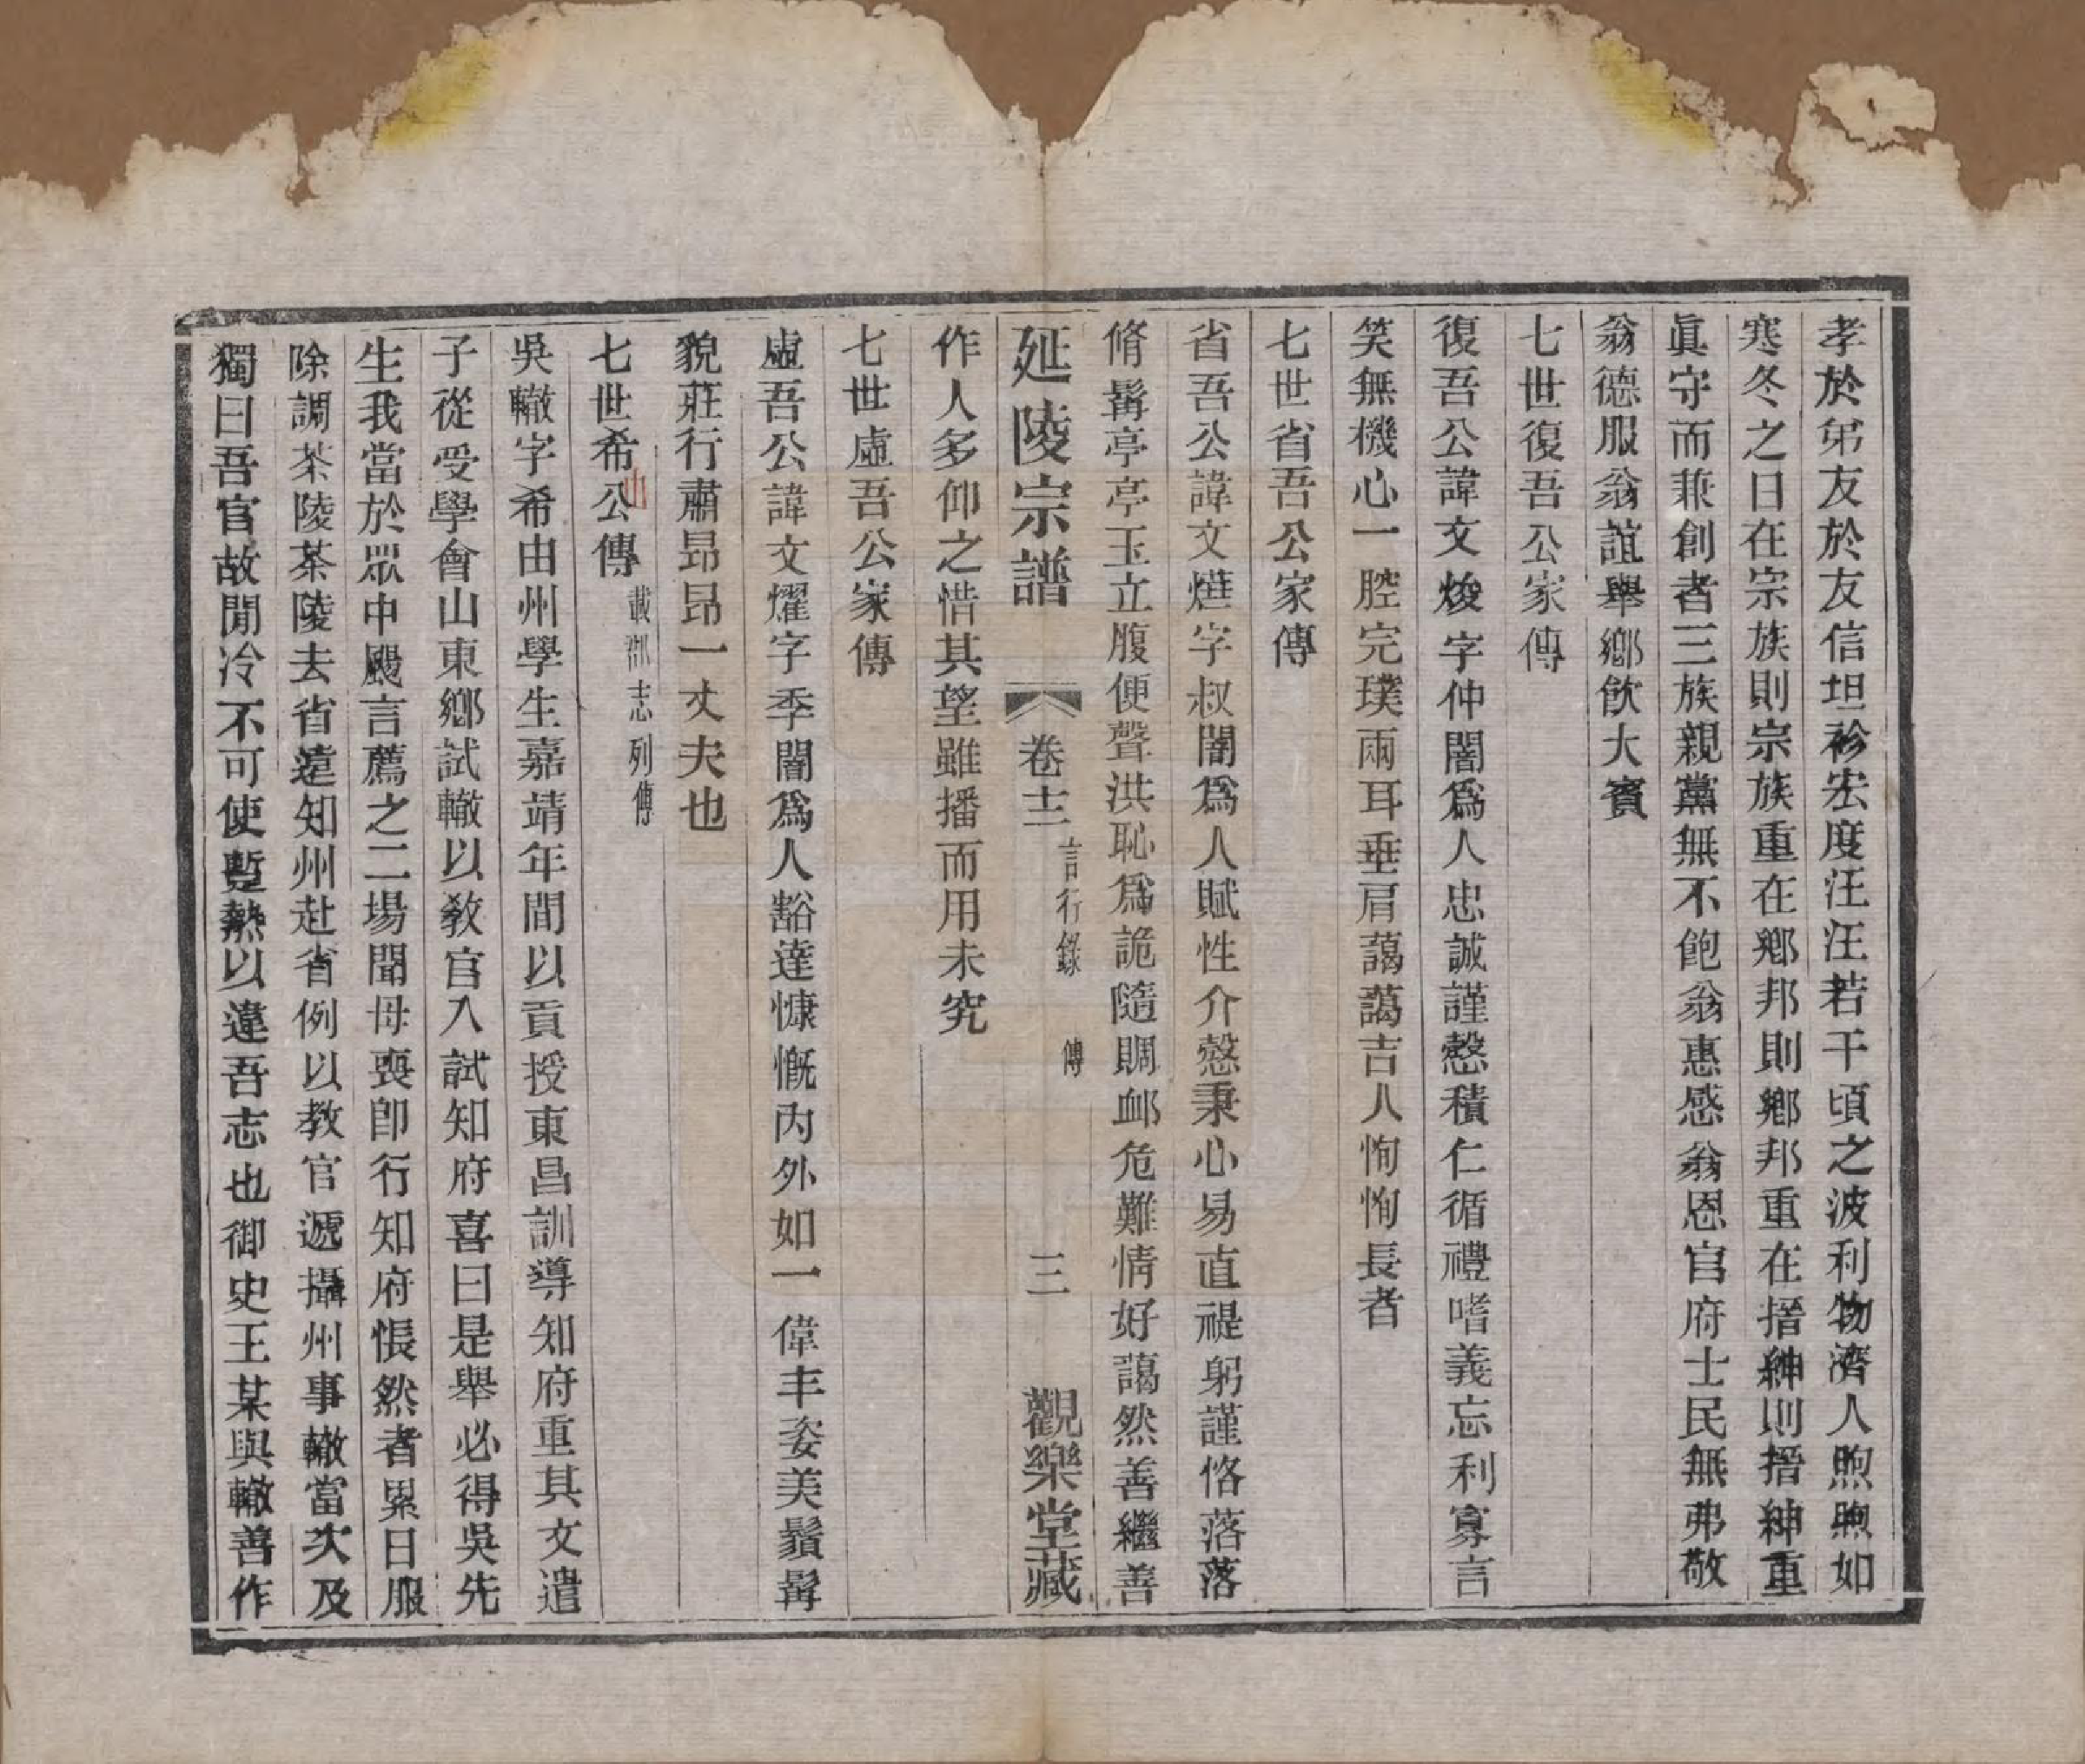 孝於弟友於友信坦衫宏度汪汪若干頃之波利物濟人煦煦如
寒冬之日在宗族則宗族重在鄉邦則鄉邦重在搢紳則搢紳重
眞守而兼創者三族親黨無不飽翁惠感翁恩官府士民無弗敬
翁德服翁誼舉鄉飲大賓
七世復吾公家傳
復吾公諱文焌字仲闇爲人忠誠謹慤積仁循禮嗜義忘利寡言
笑無機心一腔完璞兩耳垂肩藹藹吉人恂恂長者
七世省吾公家傳
省吾公諱文㷸字叔闇爲人賦性介慤秉心易直禔躬謹恪落落
脩髯亭亭玉立腹便聲洪恥爲詭隨賙卹危難情好藹然善繼善
延陵宗譜 卷十二 言行錄 傳 三 觀樂堂藏
作人多仰之惜其望雖播而用未究
七世虛吾公家傳
虛吾公諱文燿字季闇爲人豁達慷慨內外如一偉丰姿美鬚髯
貌莊行肅昂昂一丈夫也
七世希由公傳 載郡志列傳
吳轍字希由州學生嘉靖年間以貢授東昌訓導知府重其文遣
子從受學會山東鄉試轍以教官入試知府喜曰是舉必得吳先
生我當於眾中颺言薦之二場聞母喪卽行知府悵然者累日服
除調茶陵茶陵去省遠知州赴省例以教官遞攝州事轍當次及
獨曰吾官故閒冷不可使暫熱以違吾志也御史王某與轍善作